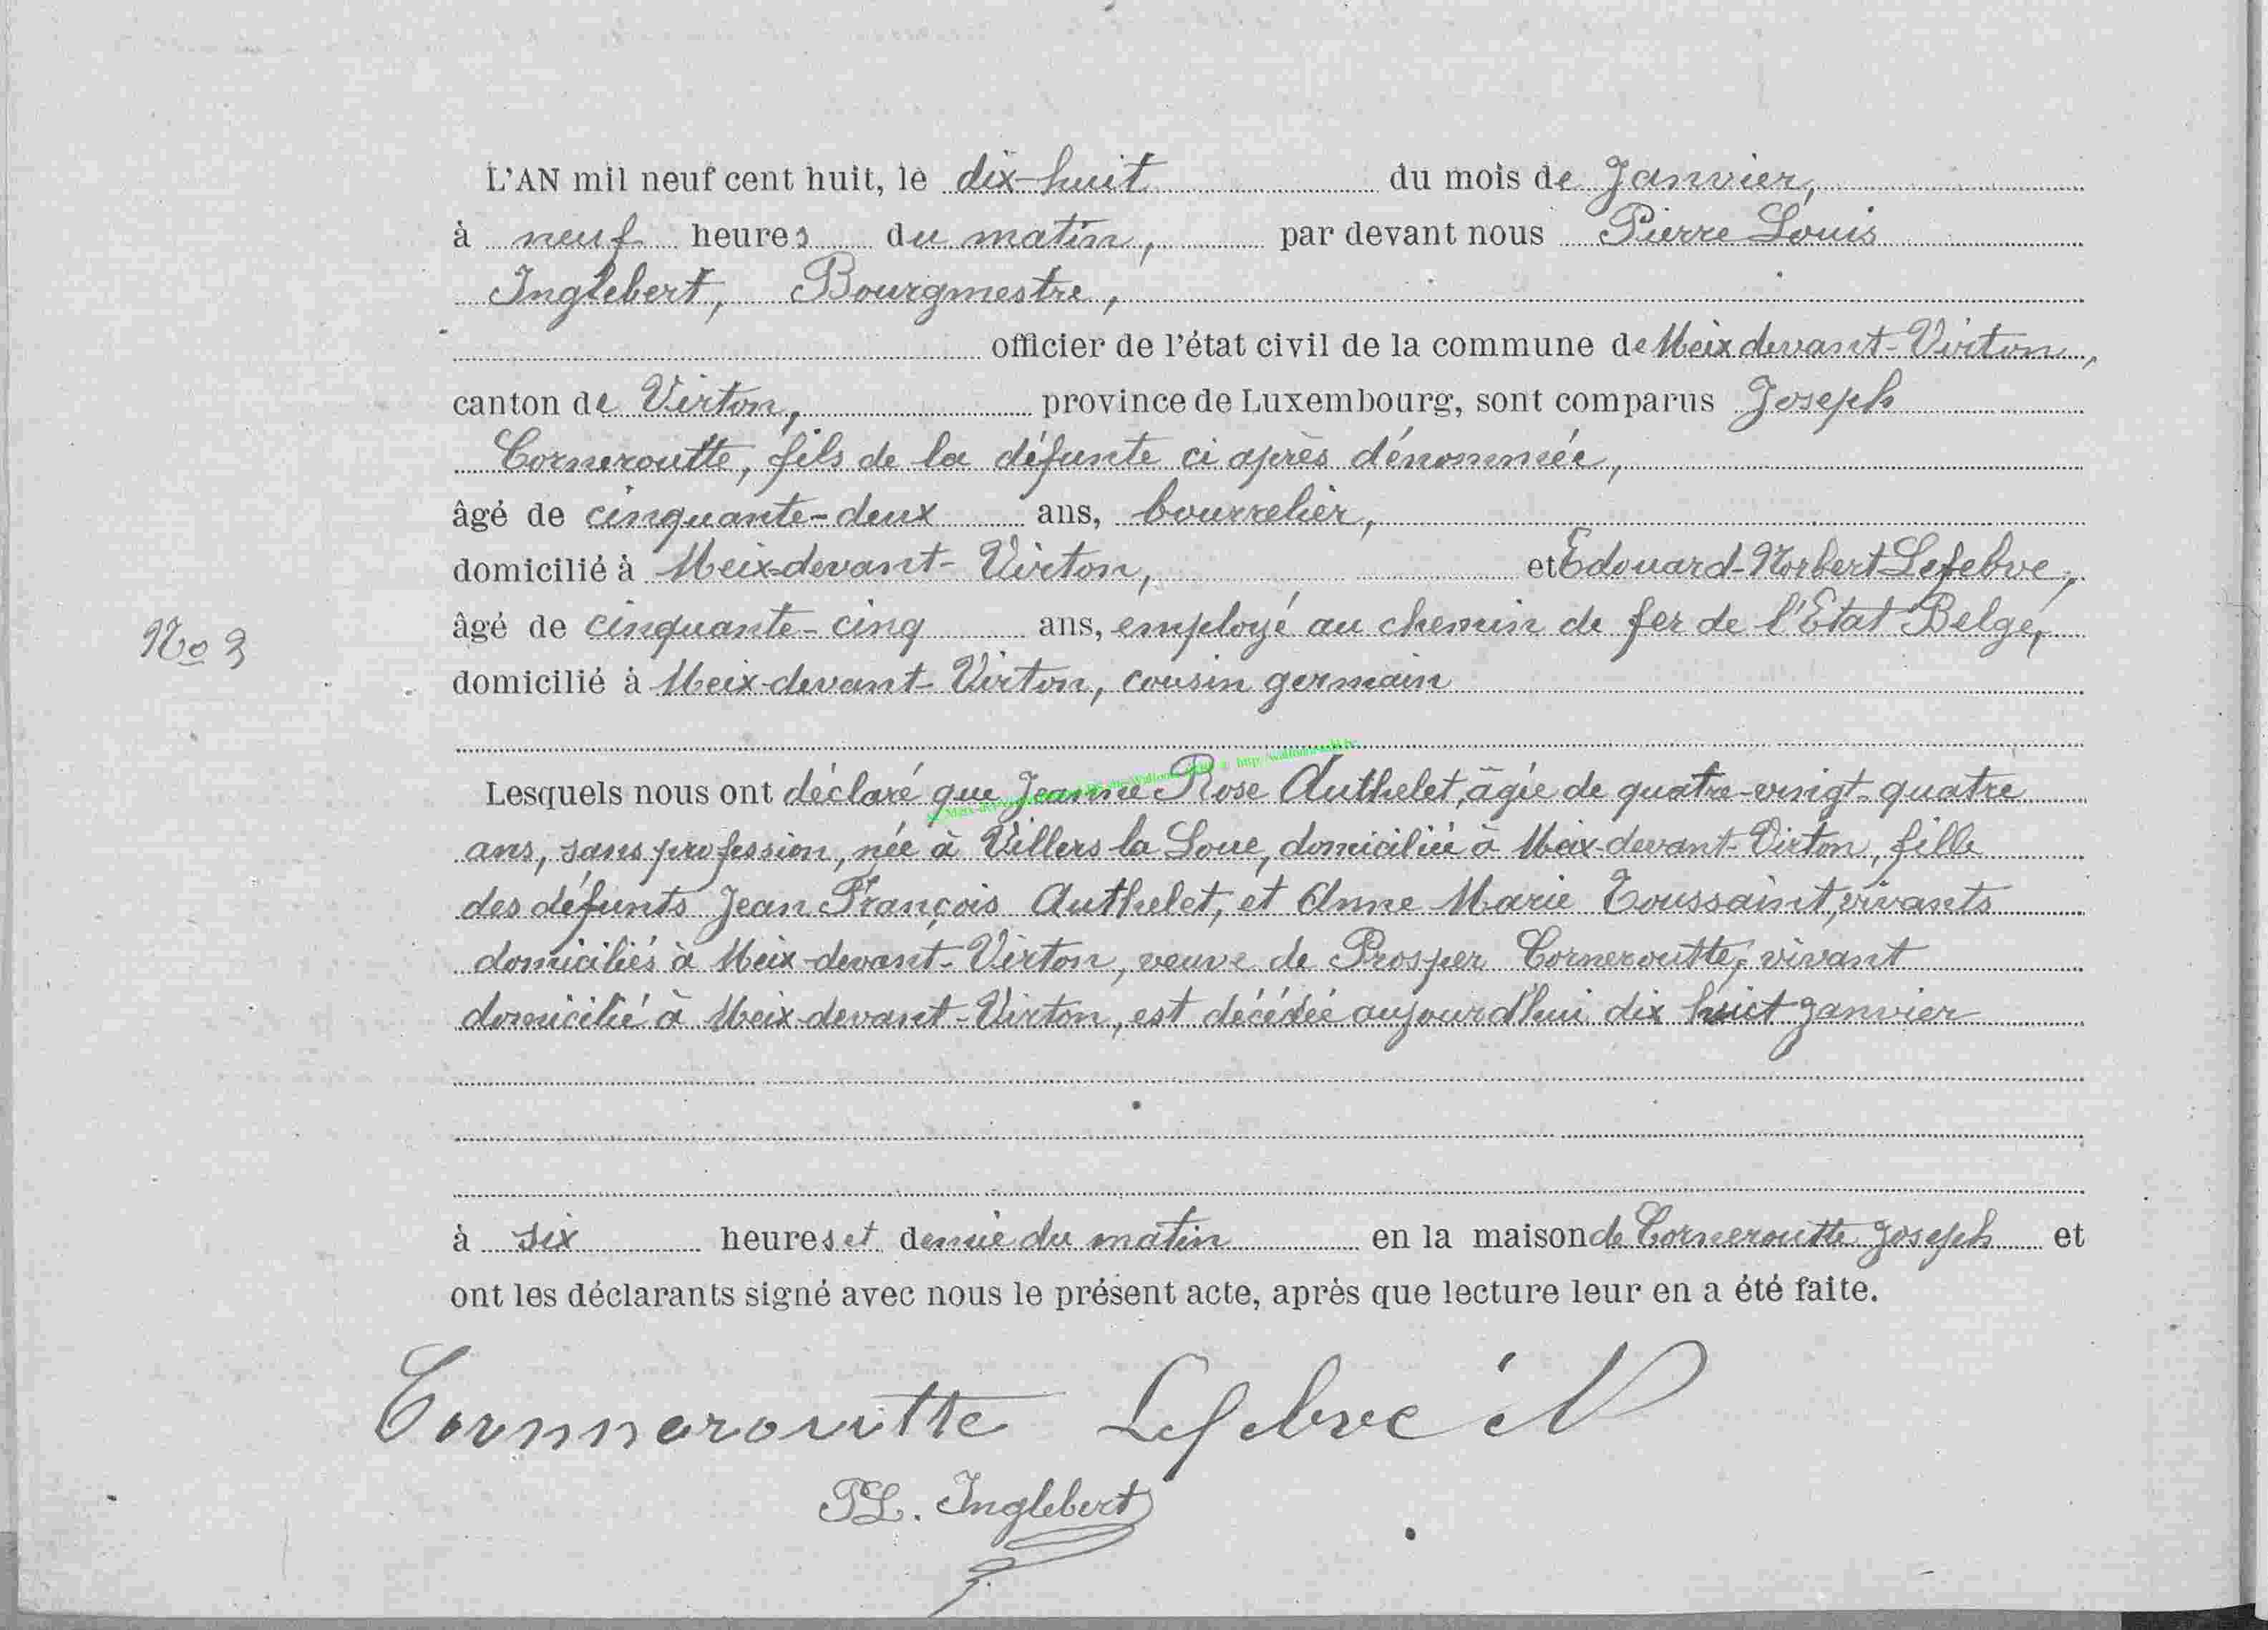 L'AN mil neuf cent huit, le dix-huit du mois de Janvier,
à neuf heures du matin, par devant nous Pierre Louis
Inglebert, Bourgmestre,
officier de l'état civil de la commune de Meix devant-Virton,
canton de Virton, province de Luxembourg, sont comparus Joseph
Corneroutte, fils de la défunte ci après dénommée,
âgé de cinquante-deux ans, bourrelier,
domicilié à Meix-devant-Virton, et Edouard-Norbert Lefebve,
âgé de cinquante-cinq ans, employé au chemin de fer de l'Etat Belge,
No 3
domicilié à Meix-devant-Virton, cousin germain
Lesquels nous ont déclaré que Jeanne Rose Authelet, âgée de quatre-vingt-quatre
ans, sans profession, née à Villers la Loue, domiciliée à Meix-devant-Virton, fille
des défunts Jean François Authelet, et Anne Marie Toussaint, vivants
domiciliés à Meix-devant-Virton, veuve de Prosper Corneroutte, vivant
domicilié à Meix-devant-Virton, est décédée aujourd'hui dix huit Janvier
à six heures et demie du matin en la maison de Corneroutte Joseph et
ont les déclarants signé avec nous le présent acte, après que lecture leur en a été faite.
Cornnerouttte Lefebve N
PL. Inglebert